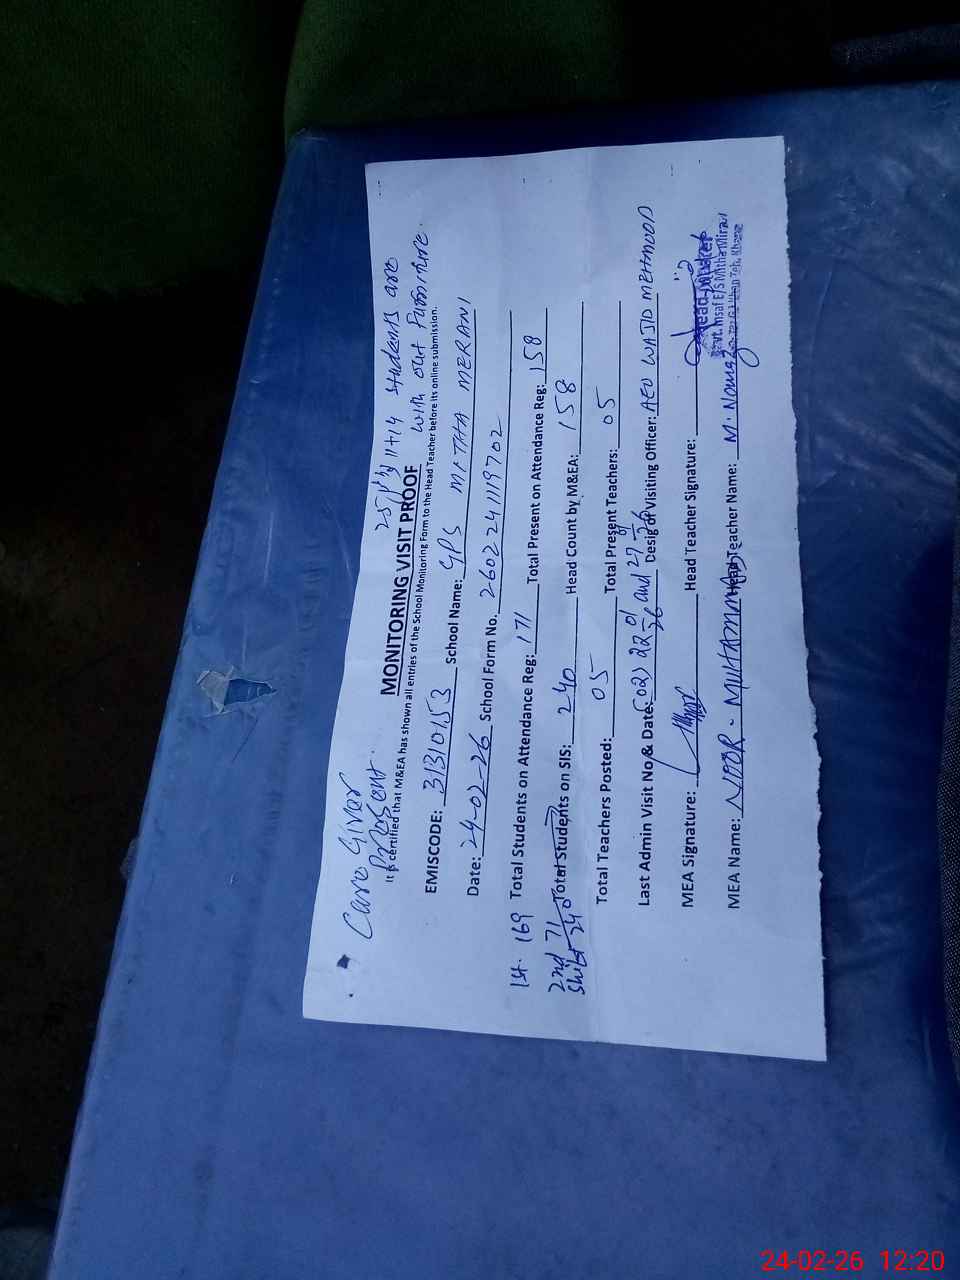 Care Giver
Present.
11+14 students are
with out furniture.
MONITORING VISIT PROOF
It is certified that M&EA has shown all entries of the School Monitoring Form to the Head Teacher before its online submission.
EMISCODE: 31310153 School Name: GPS MITHA MERANI
Date: 24-02-26 School Form No. 26022411119702
1st. 169 Total Students on Attendance Reg: 171 Total Present on Attendance Reg: 158
2nd 71 Total Students on SIS: 240 Head Count by M&EA: 158
Shift 240
Total Teachers Posted: 05 Total Present Teachers: 05
Last Admin Visit No & Date: (02) 22 01/26 and 27 Desig of Visiting Officer: AEO WAJID MEHMOOD
MEA Signature: Head Teacher Signature:
Head Master
Govt. Insaf E/S Mitha Mirani
MEA Name: NOOR - MUHAMMAD Head Teacher Name: M.
24-02-26 12:20